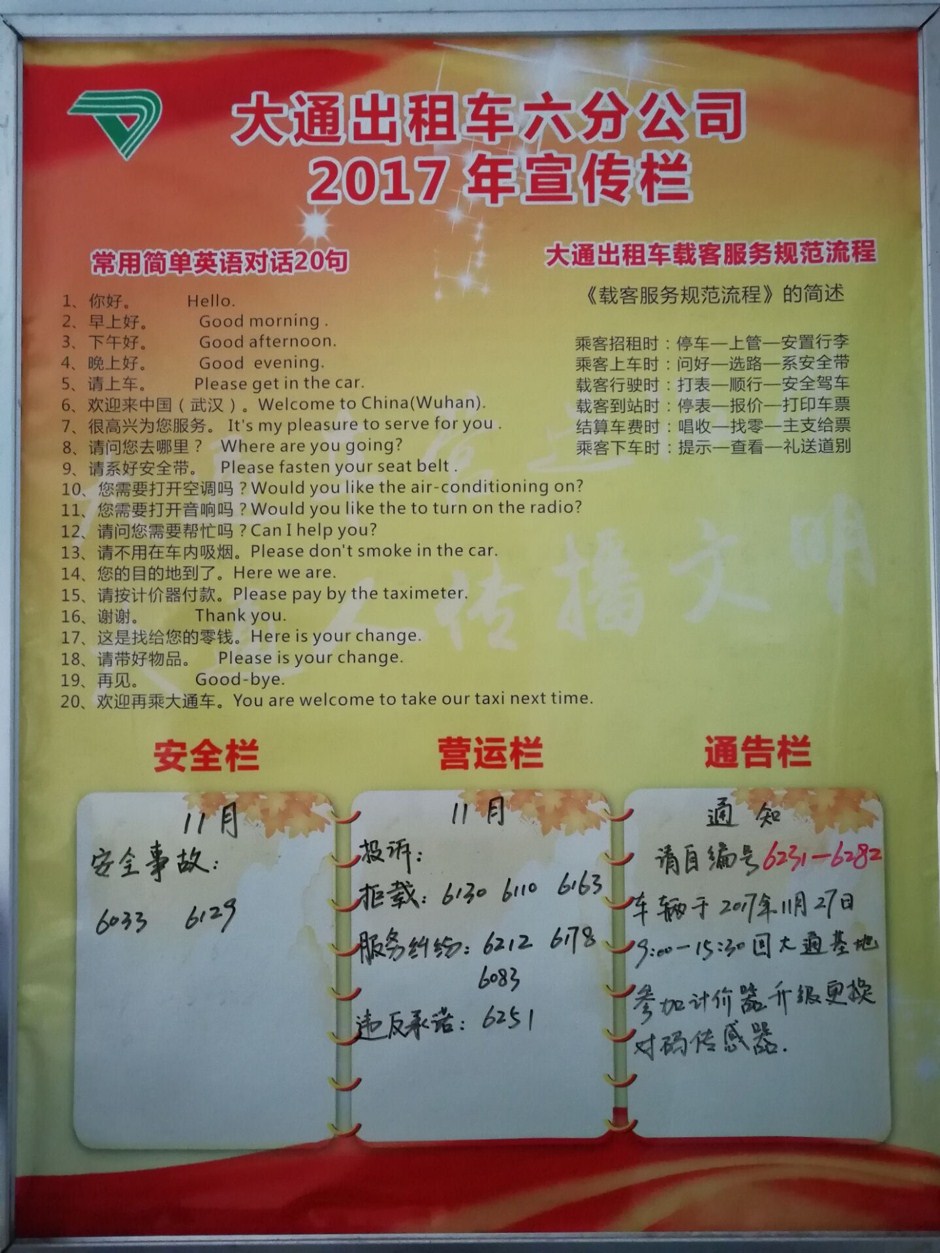 大通出租车六分公司
2017年宣传栏
常用简单英语对话20句
1、你好。 Hello.
2、早上好。 Good morning .
3、下午好。 Good afternoon.
4、晚上好。 Good evening.
5、请上车。 Please get in the car.
6、欢迎来中国（武汉）。Welcome to China(Wuhan).
7、很高兴为您服务。 It's my pleasure to serve for you .
8、请问您去哪里？ Where are you going?
9、请系好安全带。 Please fasten your seat belt .
10、您需要打开空调吗？Would you like the air-conditioning on?
11、您需要打开音响吗？Would you like the to turn on the radio?
12、请问您需要帮忙吗？Can I help you?
13、请不用在车内吸烟。Please don't smoke in the car.
14、您的目的地到了。Here we are.
15、请按计价器付款。Please pay by the taximeter.
16、谢谢。 Thank you.
17、这是找给您的零钱。Here is your change.
18、请带好物品。 Please is your change.
19、再见。 Good-bye.
20、欢迎再乘大通车。You are welcome to take our taxi next time.
大通出租车载客服务规范流程
《载客服务规范流程》的简述
乘客招租时：停车—上管—安置行李
乘客上车时：问好—选路—系安全带
载客行驶时：打表—顺行—安全驾车
载客到站时：停表—报价—打印车票
结算车费时：唱收—找零—主支给票
乘客下车时：提示—查看—礼送道别
人传播文明
安全栏
11月
安全事故：
6033 6129
营运栏
11月
投诉：
拒载：6130 6110 6163
服务纠纷：6212 6178
6083
违反承诺：6251
通告栏
通知
请自编号6231—6282
车辆于2017年11月27日
9:00—15:30回大通基地
参加计价器升级更换
对码传感器.